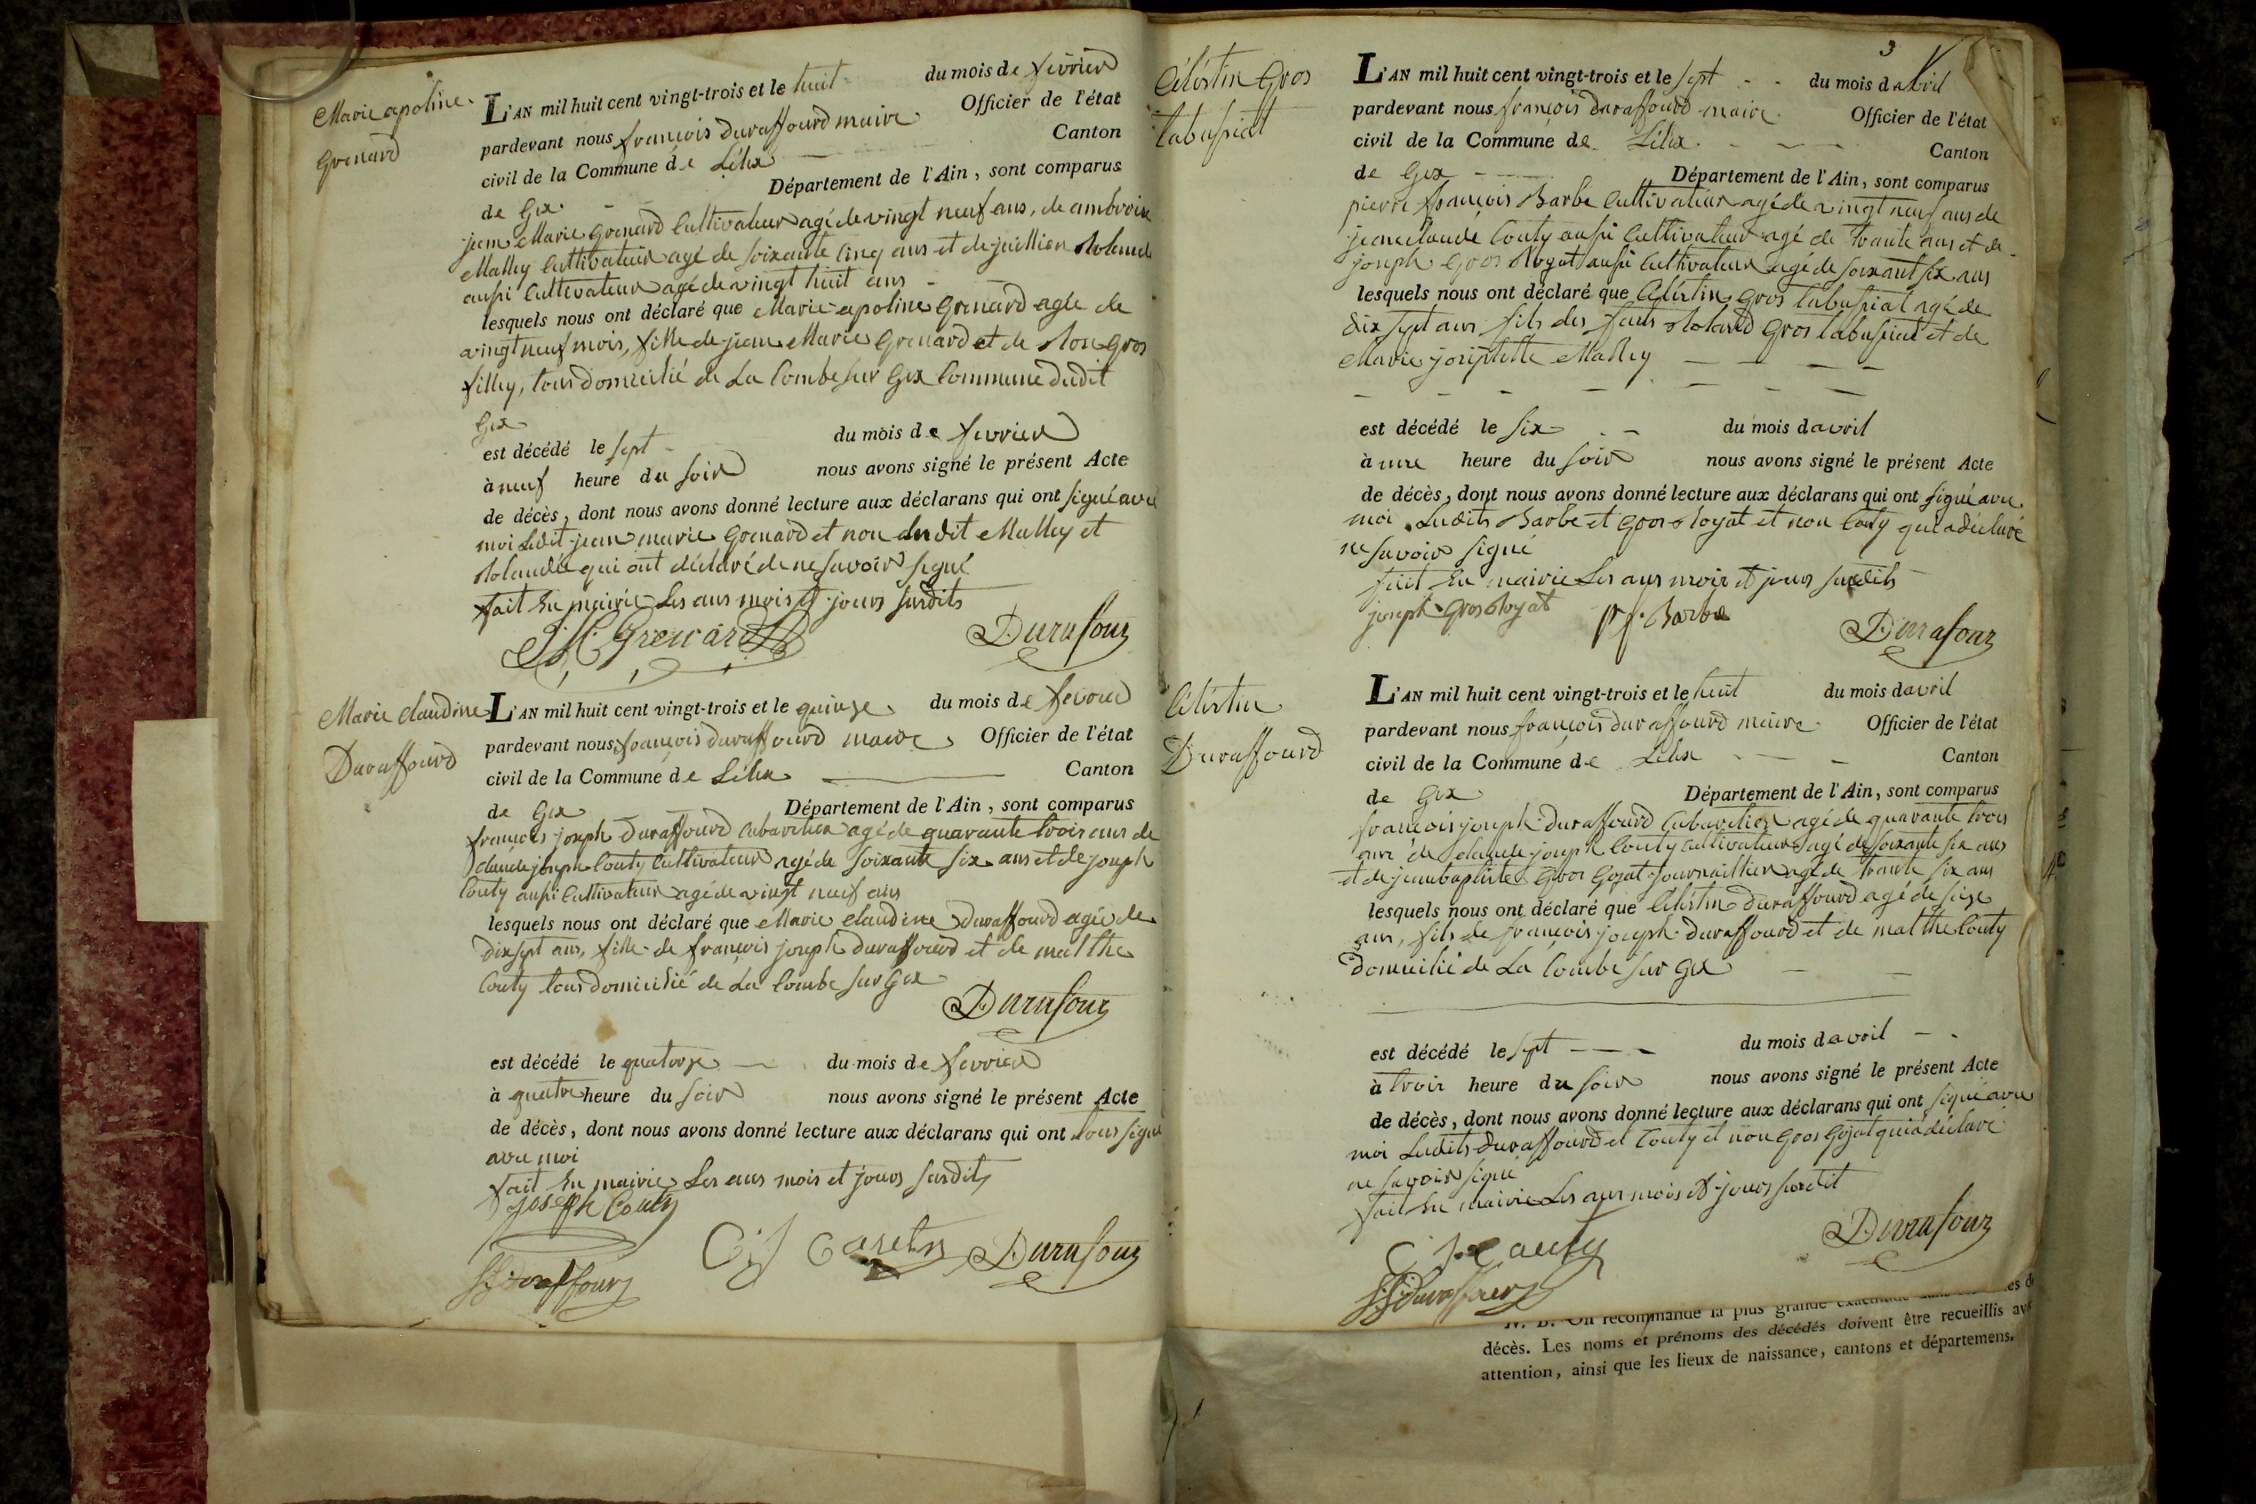 Marie apoline
Grenard
L'AN mil huit cent vingt-trois et le huit du mois de fevrier
pardevant nous françois duraffourd maire Officier de l'état
civil de la Commune de Lélex Canton
de Gex Département de l'Ain, sont comparus
jean Marie Grenard Cultivateur agé de vingt neuf ans, de ambroise
Malley Cultivateur agé de soixante cinq ans et de juillien
aussi Cultivateur agé de vingt huit ans
lesquels nous ont déclaré que Marie apoline Grenard agée de
vingt neuf mois, fille de jean Marie Grenard et de gros
filley, tous domicilié de La Combe sur Gex Commune dudit
Gex
est décédé le sept du mois de fevrier
à neuf heure du soir nous avons signé le présent Acte
de décès, dont nous avons donné lecture aux déclarans qui ont signé avec
moi Ledit jean marie Grenard et non Ledit Malley et
qui ont déclaré de ne savoir signé
fait En mairie Les ans mois et jours susdits
J. M. Grenard Durafour
Marie claudine
Duraffourd
L'AN mil huit cent vingt-trois et le quinze du mois de fevrier
pardevant nous françois duraffourd maire Officier de l'état
civil de la Commune de Lélex Canton
de Gex Département de l'Ain, sont comparus
françois joseph duraffourd cabaretier agé de quarante trois ans de
claude joseph Couty Cultivateur agé de soixante six ans et de joseph
Couty aussi Cultivateur agé de vingt neuf ans
lesquels nous ont déclaré que Marie claudine duraffourd agée de
dix sept ans, fille de françois joseph duraffourd et de malthe
Couty tous domicilié de La Combe sur Gex
Durafour
est décédé le quatorze du mois de fevrier
à quatre heure du soir nous avons signé le présent Acte
de décès, dont nous avons donné lecture aux déclarans qui ont tous signé
avec moi
fait En mairie Les ans mois et jours susdits
joseph Couty
C. j Durafour
f j duraffour
3
Céléstin Gros
labussiat
L'AN mil huit cent vingt-trois et le sept du mois d avril
pardevant nous françois duraffourd maire Officier de l'état
civil de la Commune de Lélex Canton
de Gex Département de l'Ain, sont comparus
pierre françois Barbe Cultivateur agé de vingt neuf ans de
jean claude Couty aussi Cultivateur agé de trante ans et de
joseph Gros Royat aussi Cultivateur agé de soixant six ans
lesquels nous ont déclaré que Céléstin gros labussiat agé de
dix sept ans fils des feuts Roland Gros labussiat et de
Marie josephtte Malley
est décédé le six du mois d avril
à une heure du soir nous avons signé le présent Acte
de décès, dont nous avons donné lecture aux déclarans qui ont signé avec
moi Ludits Barbe et Gros Royat et non Couty qui a déclaré
ne savoir signé
fait En mairie Les ans mois et jours susdits
joseph Gros Royat p f. Barbe Durafour
Céléstin
Duraffourd
L'AN mil huit cent vingt-trois et le huit du mois d avril
pardevant nous françois duraffourd maire Officier de l'état
civil de la Commune de Lélex Canton
de Gex Département de l'Ain, sont comparus
françois joseph duraffourd Cabaretier agé de quarante trois
ans de claude joseph Couty Cultivateur agé de soixante six ans
et de jean baptiste Gros Gojat journaillier agé de trante six ans
lesquels nous ont déclaré que Céléstin duraffourd agé de seize
ans, fils de françois joseph duraffourd et de malthe Couty
domicilié de La Combe sur Gex
est décédé le sept du mois d avril
à trois heure du soir nous avons signé le présent Acte
de décès, dont nous avons donné lecture aux déclarans qui ont signé avec
moi Ludits duraffourd et Couty et non Gros Gojat qui a déclaré
ne savoir signé
fait En mairie Les ans mois et jours susdit
C. j. Couty Durafour
f. j. duraffour
N. B. On recommande la plus grande
décès. Les noms et prénoms des décédés doivent être recueillis
attention, ainsi que les lieux de naissance, cantons et départemens.